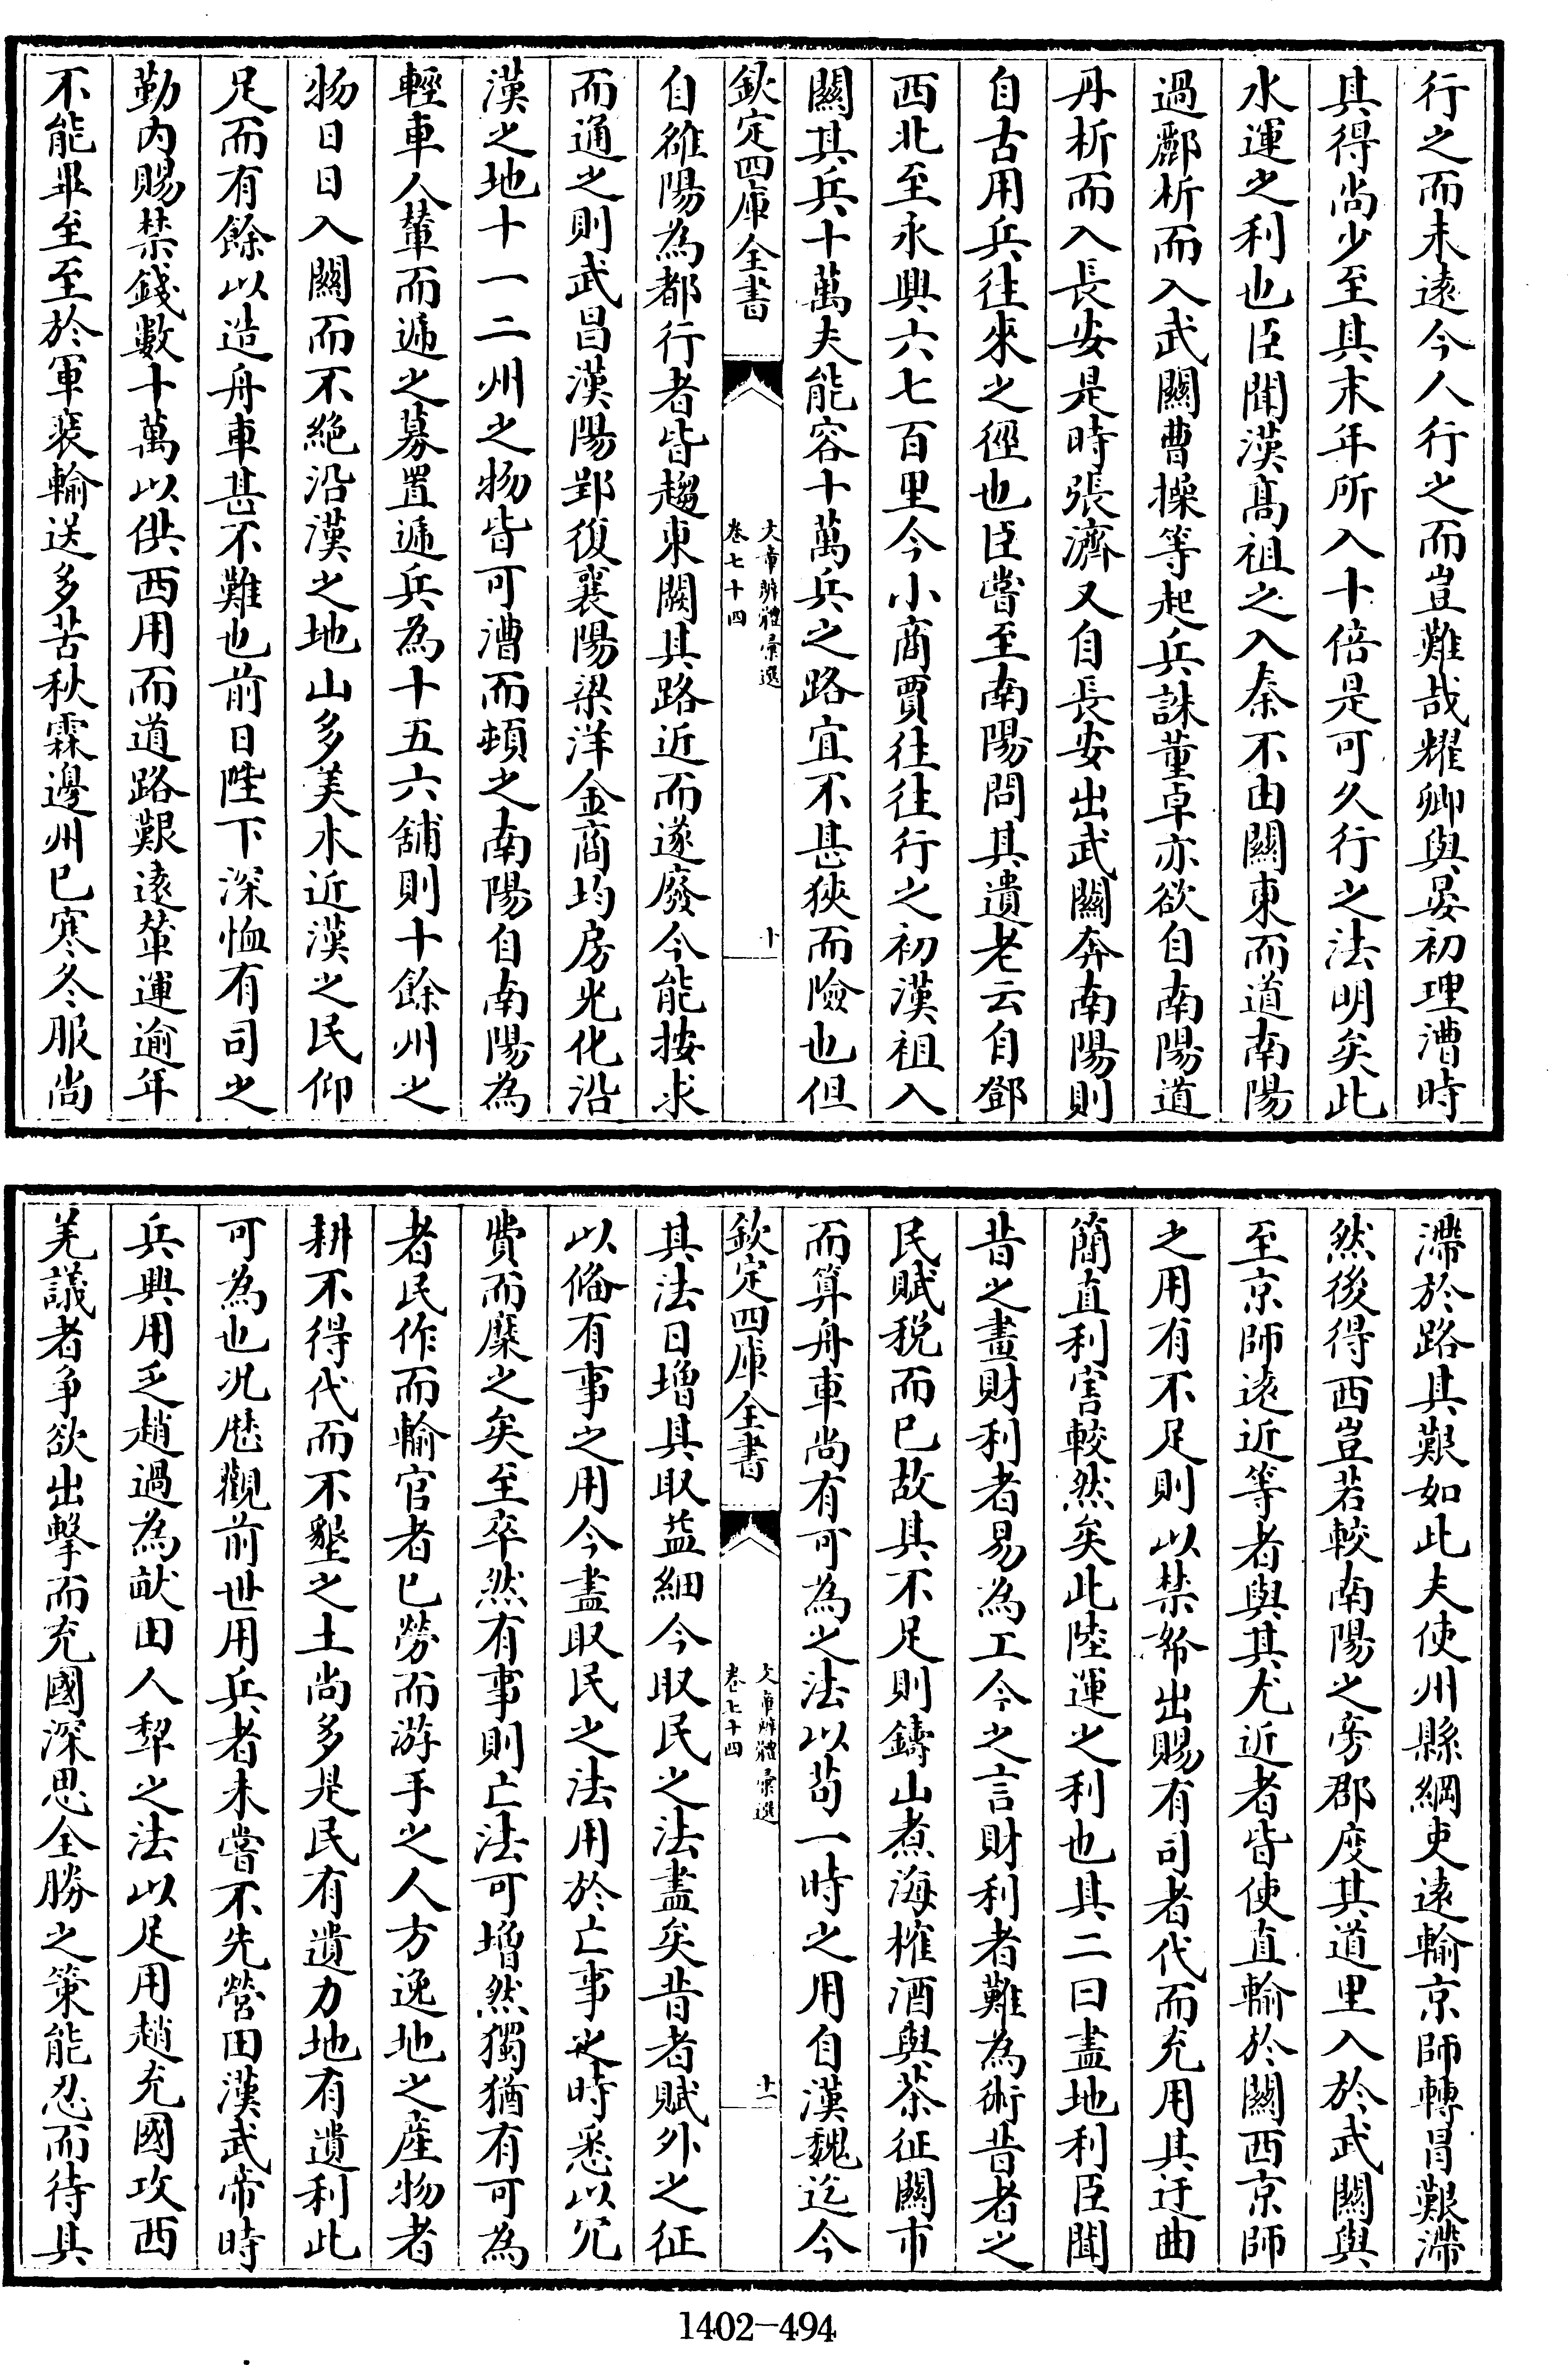 行之而未遠今人行之而豈難哉耀卿與晏初理漕時
其得尚少至其末年所入十倍是可久行之法明矣此
水運之利也臣聞漢髙祖之入秦不由關東而道南陽
過酈析而入武關曹操等起兵誅董卓亦欲自南陽道
丹析而入長安是時張濟又自長安出武關奔南陽則
自古用兵往來之徑也臣嘗至南陽問其遺老云自鄧
西北至永興六七百里今小商賈往往行之初漢祖入
關其兵十萬夫能容十萬兵之路宜不甚狹而險也但
欽定四庫全書
文章辨體彚選
卷七十四
十
自雒陽為都行者皆趨東關其路近而遂廢今能按求
而通之則武昌漢陽郢復襄陽梁洋金商均房光化沿
漢之地十一二州之物皆可漕而頓之南陽自南陽為
輕車人輦而遞之募置遞兵為十五六舖則十餘州之
物日日入關而不絶沿漢之地山多美木近漢之民仰
足而有餘以造舟車甚不難也前日陛下深恤有司之
勤内賜禁錢數十萬以供西用而道路艱遠輦運逾年
不能畢至至於軍裝輸送多苦秋霖邊州已寒冬服尚
滯於路其艱如此夫使州縣綱吏遠輸京師轉冒艱滯
然後得西豈若較南陽之旁郡度其道里入於武關與
至京師逺近等者與其尤近者皆使直輸於關西京師
之用有不足則以禁帑出賜有司者代而充用其迂曲
簡直利害較然矣此陸運之利也其二曰盡地利臣聞
昔之畫財利者易為工今之言財利者難為術昔者之
民賦税而已故其不足則鑄山煮海榷酒與茶征關市
而算舟車尚有可為之法以苟一時之用自漢魏迄今
欽定四庫全書
文章辨體彚選
卷七十四
十一
其法日增其取益細今取民之法盡矣昔者賦外之征
以偹有事之用今盡取民之法用於亡事之時悉以冗
費而糜之矣至卒然有事則亡法可增然獨猶有可為
者民作而輸官者已勞而游手之人方逸地之産物者
耕不得代而不墾之土尚多是民有遺力地有遺利此
可為也况歴觀前世用兵者未嘗不先營田漢武帝時
兵興用乏趙過為畎田人犂之法以足用趙充國攻西
羌議者爭欲出擊而充國深思全勝之策能忍而待其
1402-494